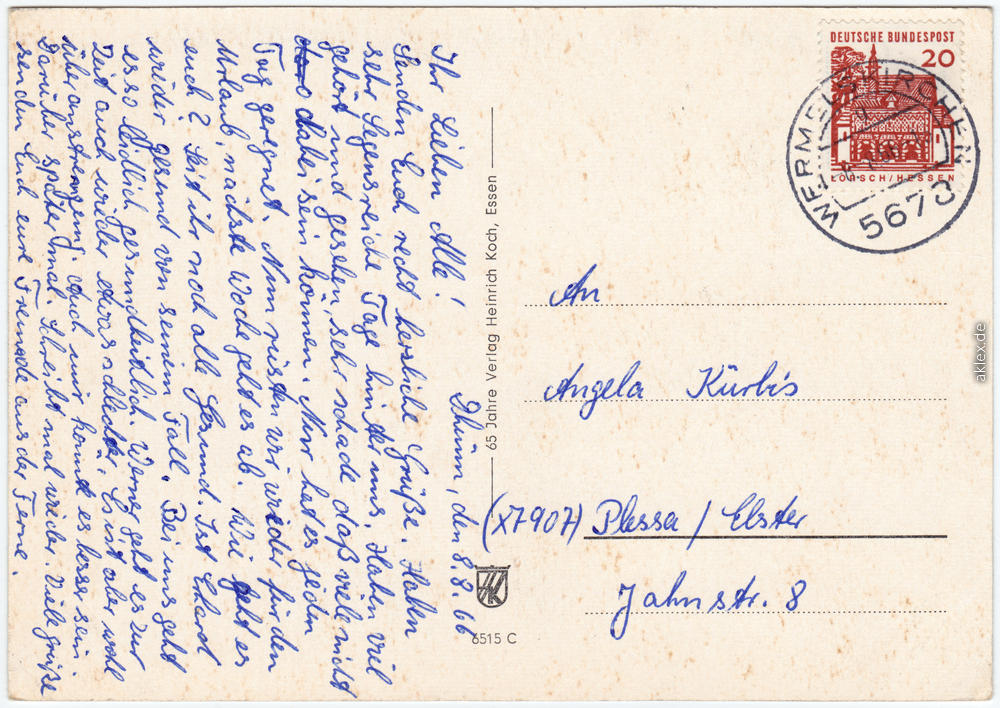 Dhünn, den 8.8.66
Ihr Lieben Alle!
Senden Euch recht herzliche Grüße. Hatten
sehr Segensreiche Tage hinter uns. Haben viel
gehört und gesehen, sehr schade daß viele nicht
dabei sein konnen. Nur hat es jeden
Tag geregnet. Nun rüsten wir wieder für den
Urlaub, nächste Woche geht es ab. Wie geht es
euch? Seit ihr noch alle Gesund. Ist Ekard
wieder gesund von seinem Fall. Bei uns geht
es so leidlich gesundheitlich. Werner geht es zur
Zeit auch wieder etwas schlecht. Es ist aber wohl
über anstrengung. Auch mir konnte es besser sein.
Darüber später mal. Schreibt mal wieder. Viele grüße
senden Euch eure Freunde aus der Ferne.
65 Jahre Verlag Heinrich Koch, Essen
HK
6515 C
DEUTSCHE BUNDESPOST
20
LORSCH/HESSEN
WERMELSKIRCHEN
5673
An
Angela Kürbis
(X7907) Plessa / Elster
Jahnstr. 8
aklex.de